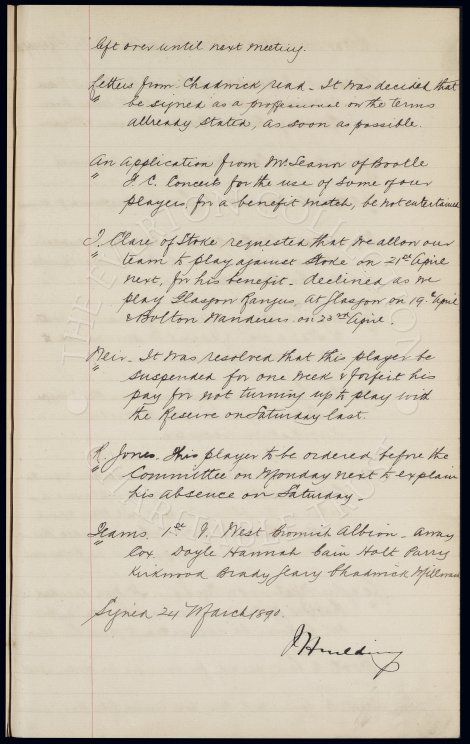 left over until next meeting.
Letters from Chadwick read - It was decided that
" be signed as a proffessional on the terms
allready stated, as soon as possible.
An application from Mr Seanor of Bootle
" F. C. Concerts for the use of some of our
players for a benefit match, be not entertained
T. Clare of Stoke requested that we allow our
" team to play against Stoke on 21st April
next, for his benefit - declined as we
play Glasgow Rangers, at Glasgow on 19th April
& Bolton Wanderers on 23rd April.
Weir - It was resolved that this player be
" suspended for one week & forfeit his
pay for not turning up to play with
the Reserve on Saturday last.
R. Jones. This player to be ordered before the
" Committee on Monday next to explain
his absence on Saturday -
Teams. 1st V. West Bromich Albion - away
" Cox Doyle Hannah Cain Holt Parry
Kirkwood Brady Geary Chadwick Millward
Signed 24 March 1890.
J Houlding
THE EVERTON COLLECTION
CHARITABLE TRUST